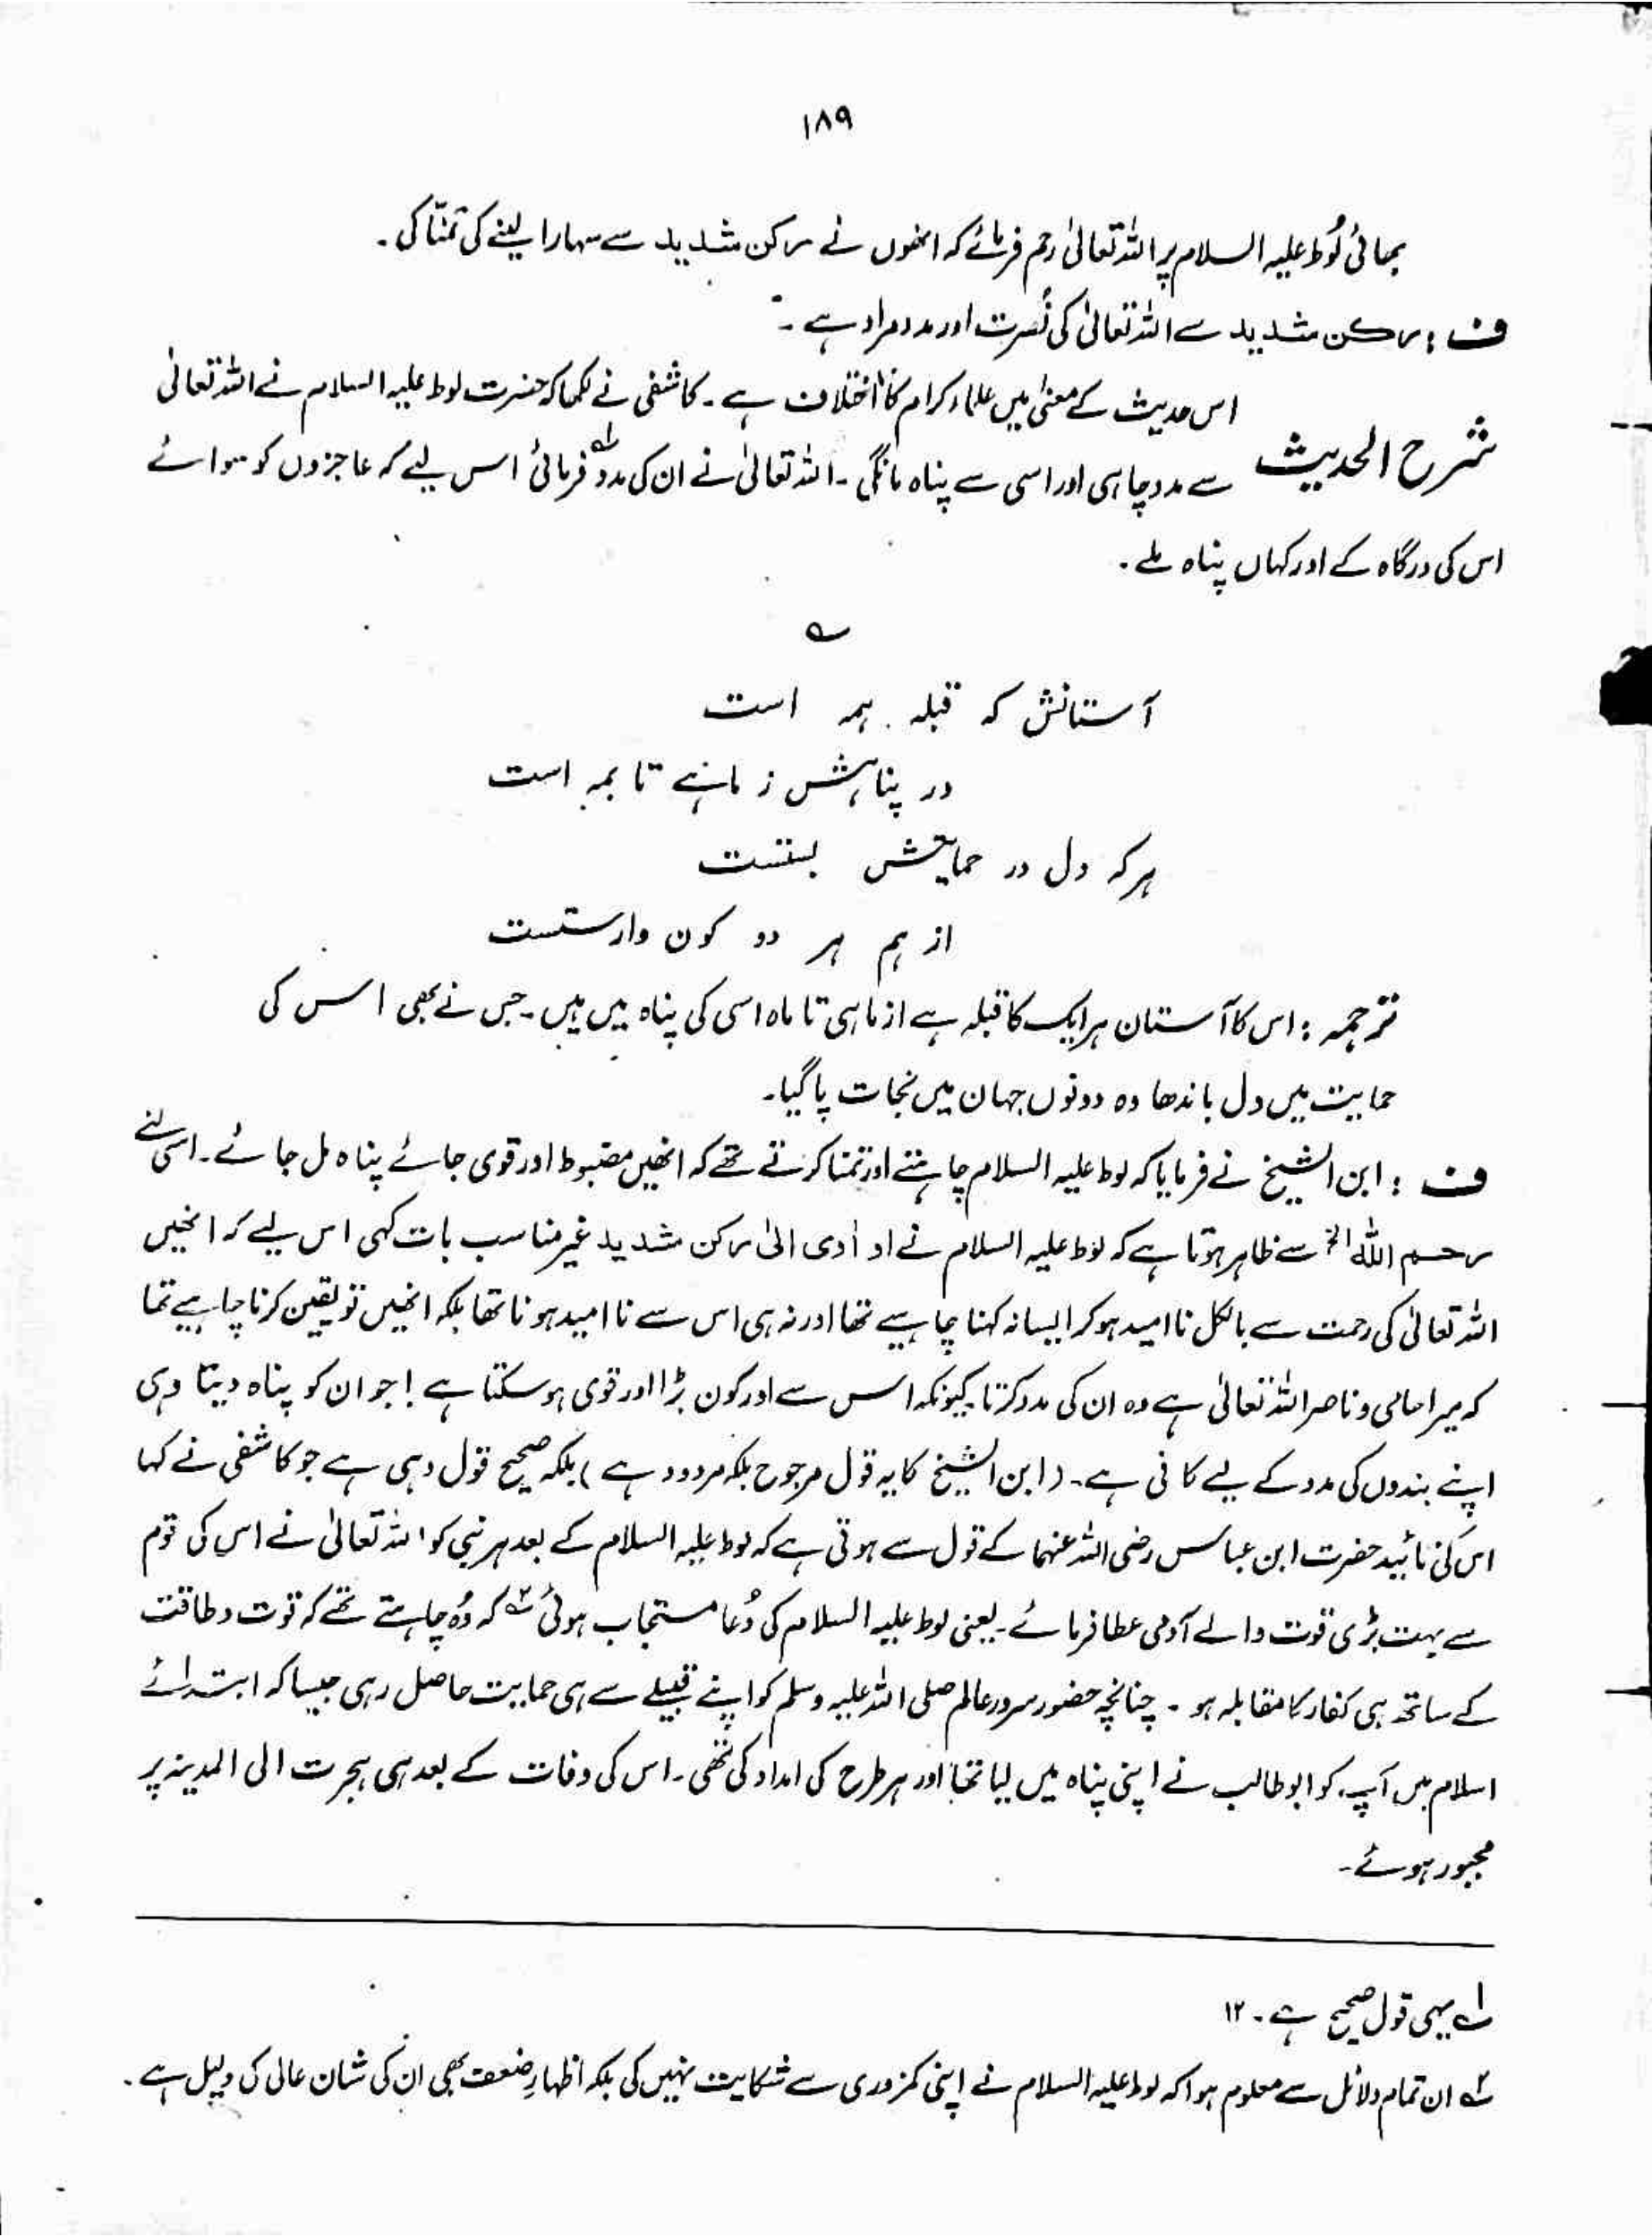 ۱۸۹
بھائی لُوط علیہ السلام پر اللہ تعالیٰ رحم فرمائے کہ انھوں نے رکن شدید سے سہارا لینے کی تمنّا کی۔
ف : رکن شدید سے اللہ تعالیٰ کی نُصرت اور مدد مراد ہے۔
اس حدیث کے معنیٰ میں علماء کرام کا اختلاف ہے۔ کاشفی نے لکھا کہ حضرت لوط علیہ السلام نے اللہ تعالیٰ
شرح الحدیث سے مدد چاہی اور اسی سے پناہ مانگی۔ اللہ تعالیٰ نے ان کی مدد ۱؎ فرمائی اس لیے کہ عاجزوں کو سوائے
اس کی درگاہ کے اور کہاں پناہ ملے۔
؎
آستانش کہ قبلہ ہمہ است
در پناہش ز ماہی تا بمہ است
ہر کہ دل در حمایتش بستست
از ہم ہر دو کون وارستست
ترجمہ : اس کا آستان ہر ایک کا قبلہ ہے از ماہی تا ماہ اسی کی پناہ میں ہیں۔ جس نے بھی اس کی
حمایت میں دل باندھا وہ دونوں جہان میں نجات پا گیا۔
ف : ابن الشیخ نے فرمایا کہ لوط علیہ السلام چاہتے اور تمنا کرتے تھے کہ انھیں مضبوط اور قوی جائے پناہ مل جائے۔ اسی لئے
رحم اللہ الخ سے ظاہر ہوتا ہے کہ لوط علیہ السلام نے او اٰوی الیٰ رکن شدید غیر مناسب بات کہی اس لیے کہ انھیں
اللہ تعالیٰ کی رحمت سے بالکل ناامید ہو کر ایسا نہ کہنا چاہیے تھا اور نہ ہی اس سے ناامید ہونا تھا بلکہ انھیں تو یقین کرنا چاہیے تھا
کہ میرا حامی و ناصر اللہ تعالیٰ ہے وہ ان کی مدد کرتا کیونکہ اس سے اور کون بڑا اور قوی ہو سکتا ہے! جو ان کو پناہ دیتا وہی
اپنے بندوں کی مدد کے لیے کافی ہے۔ (ابن الشیخ کا یہ قول مرجوح بلکہ مردود ہے) بلکہ صحیح قول وہی ہے جو کاشفی نے کہا
اس کی تائید حضرت ابن عباس رضی اللہ عنہما کے قول سے ہوتی ہے کہ لوط علیہ السلام کے بعد ہر نبی کو اللہ تعالیٰ نے اس کی قوم
سے بہت بڑی قوت والے آدمی عطا فرمائے۔ یعنی لوط علیہ السلام کی دُعا مستجاب ہوئی ۲؎ کہ وُہ چاہتے تھے کہ قوت و طاقت
کے ساتھ ہی کفار کا مقابلہ ہو۔ چنانچہ حضور سرور عالم صلی اللہ علیہ وسلم کو اپنے قبیلے سے ہی حمایت حاصل رہی جیسا کہ ابتدائے
اسلام میں آپ کو ابو طالب نے اپنی پناہ میں لیا تھا اور ہر طرح کی امداد کی تھی۔ اس کی وفات کے بعد ہی ہجرت الی المدینہ پر
مجبور ہوئے۔
۱؎ یہی قول صحیح ہے۔ ۱۲
۲؎ ان تمام دلائل سے معلوم ہوا کہ لوط علیہ السلام نے اپنی کمزوری سے شکایت نہیں کی بلکہ اظہارِ ضعف بھی ان کی شان عالی کی دلیل ہے۔